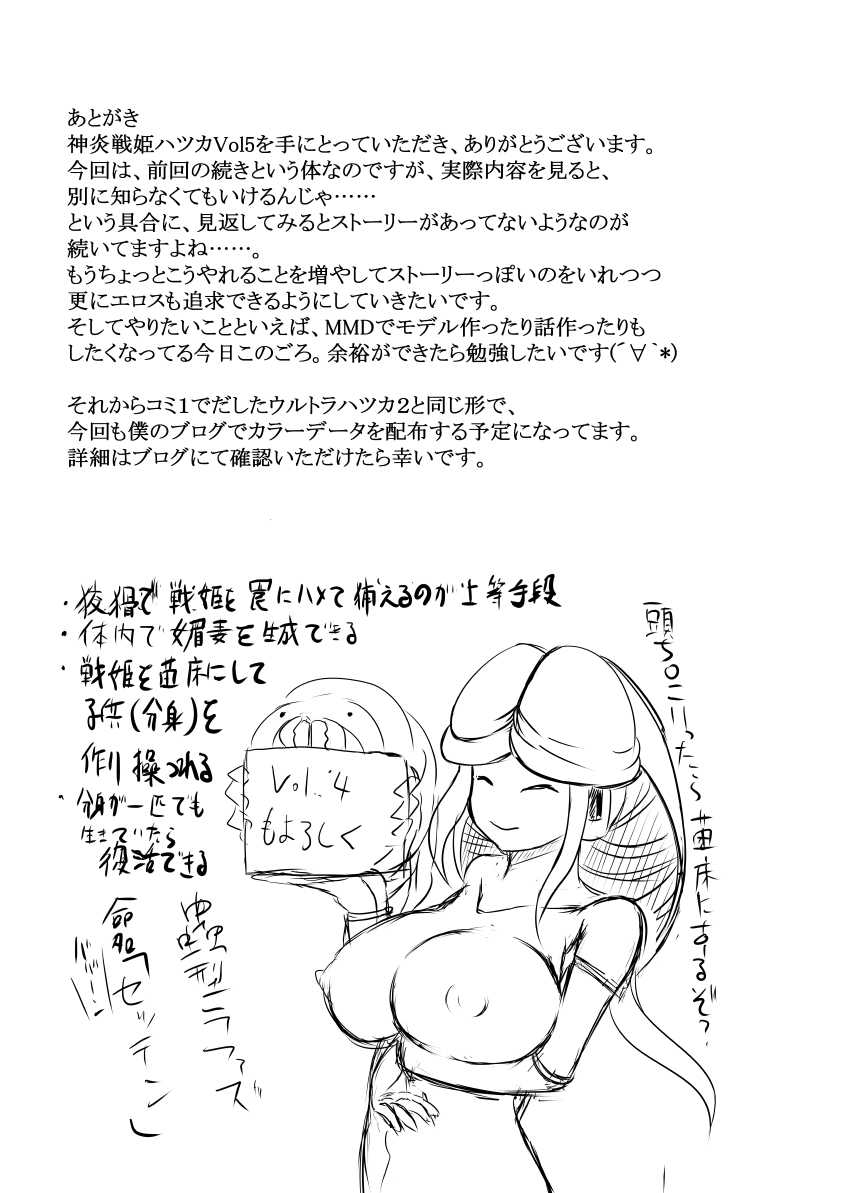 あとがき
神炎戦姫ハツカVol5を手にとっていただき、ありがとうございます。
今回は、前回の続きという体なのですが、実際内容を見ると、
別に知らなくてもいけるんじゃ……
という具合に、見返してみるとストーリーがあってないようなのが
続いてますよね……。
もうちょっとこうやれることを増やしてストーリーっぽいのをいれつつ
更にエロスも追求できるようにしていきたいです。
そしてやりたいことといえば、MMDでモデル作ったり話作ったりも
したくなってる今日このごろ。余裕ができたら勉強したいです(´∀｀*)
それからコミ１でだしたウルトラハツカ２と同じ形で、
今回も僕のブログでカラーデータを配布する予定になってます。
詳細はブログにて確認いただけたら幸いです。
・狡猾で戦姫を罠にハメて捕えるのが上等手段
・体内で媚毒を生成できる
・戦姫を苗床にして
子供(分身)を
作り操つれる
・分身が一匹でも
生きていたら
復活できる
Vol.4
もよろしく
型ニラファズ
命名「セッテン」
ババーン
苗床にするぞっ